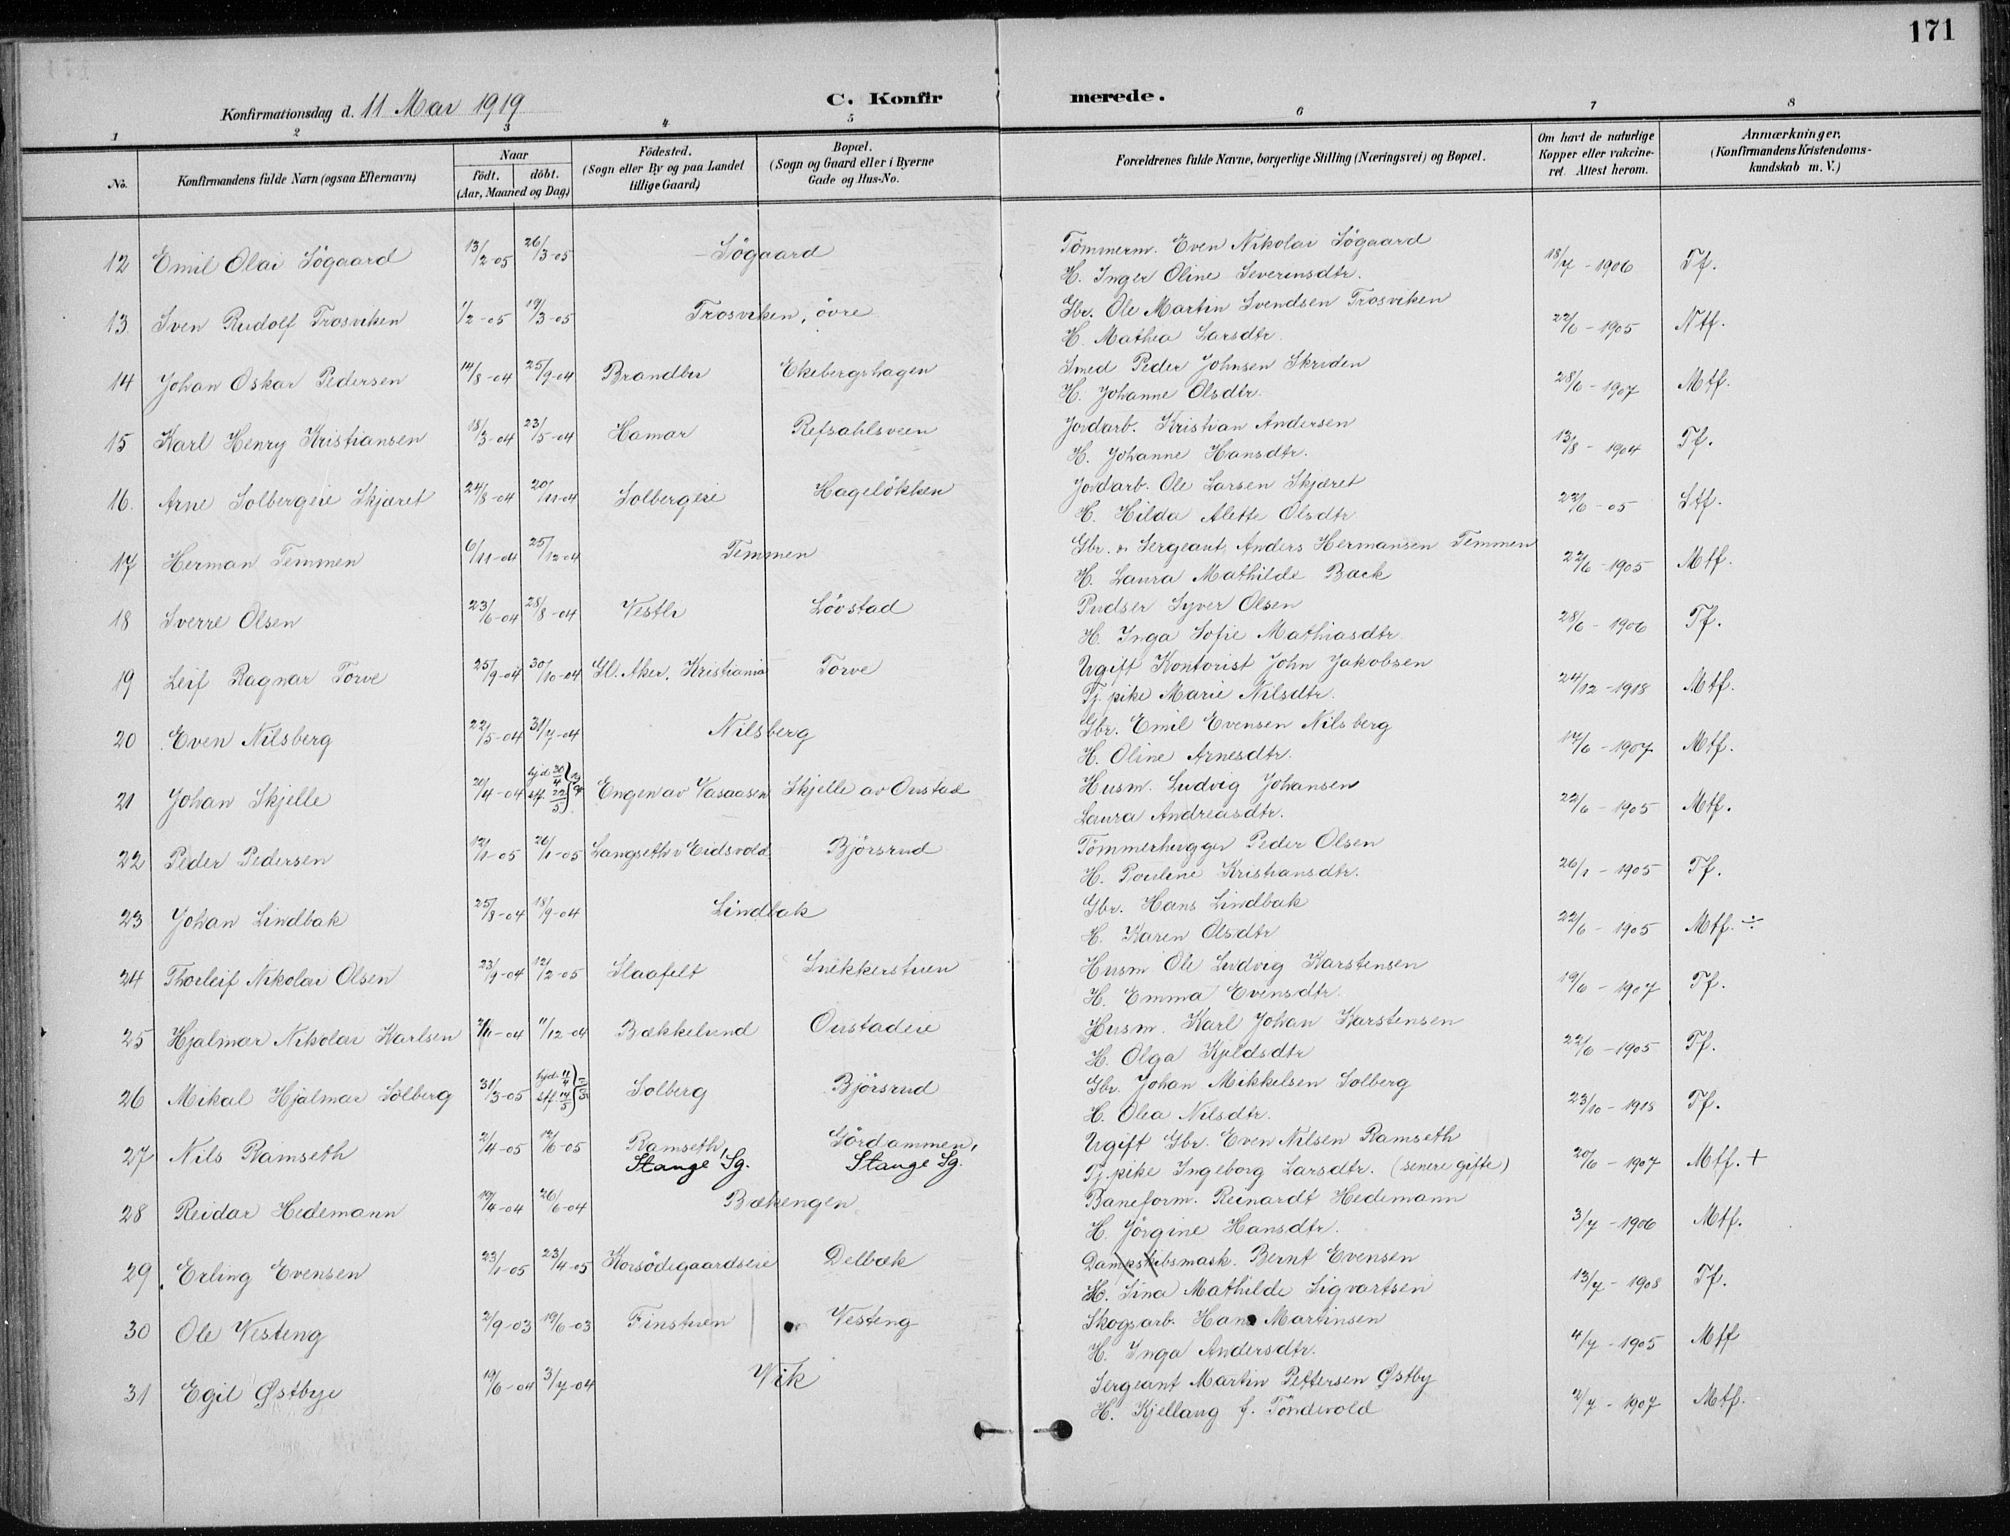 171
Konfirmationsdag d. 11 Mai 1919 C. Konfirmerede.
1 2 3 4 5 6 7 8
No. Konfirmandens fulde Navn (ogsaa Efternavn) Naar födt. döbt. (Aar, Maaned og Dag) Födested. (Sogn eller By og paa Landet tillige Gaard) Bopæl. (Sogn og Gaard eller i Byerne Gade og Hus-No. Forældrenes fulde Navne, borgerlige Stilling (Næringsvei) og Bopæl. Om havt de naturlige Kopper eller vakcineret. Attest herom. Anmærkninger, (Konfirmandens Kristendomskundskab m. V.)
12 Emil Olai Søgaard 13/2-05 26/3-05 Søgaard Tømmerm. Even Nikolai Søgaard 18/7-1906 Tf.
H. Inger Oline Severinsdtr.
13 Sven Rudolf Trosviken 1/2-05 19/3-05 Trosviken, øvre Gbr. Ole Martin Svendsen Trosviken 22/6-1905 Ntf.
H. Mathea Larsdtr.
14 Johan Oskar Pedersen 14/8-04 25/9-04 Brandbu Ekebergshagen Smed Peder Johnsen Skriden 28/6-1907 Mtf.
H. Johanne Olsdtr.
15 Karl Henry Kristiansen 18/3-04 23/5-04 Hamar Refsahlsveien Jordarb. Kristian Andersen 13/8-1904 Tf.
H. Johanne Hansdtr.
16. Arne Solbergeie Skjæret 24/8-04 20/11-04 Solbergeie Hageløkken Jordarb. Ole Larsen Skjæret 22/6-05 Stf.
H. Hilda Alette Olsdtr
17 Herman Temmen 6/11-04 25/12-04 Temmen Gbr. & Sergeant, Anders Hermansen Temmen 22/6-1905 Mtf.
H. Laura Mathilde Back
18 Sverre Olsen 23/6-04 28/8-04 Vestli Løvstad Pudser Syver Olsen 28/6-1906 Tf.
H. Inga Sofie Mathiasdtr.
19 Leif Ragnar Torve 25/9-04 30/10-04 Gl. Aker, Kristiania Torve Ugift Kontorist John Jakobsen 24/12-1918 Mtf.
Tj.pike Marie Nilsdtr.
20 Even Nilsberg 22/5-04 31/7-04 Nilsberg Gbr. Emil Evensen Nilsberg 17/6-1907 Mtf.
H. Oline Arnesdtr.
21 Johan Skjelle 20/4-04 hjd 30/4 stf. 22/5 Engen av Vasaasen Skjelle av Oustad Husm. Ludvig Johansen 22/6-1905 Mtf.
Laura Andreasdtr.
22 Peder Pedersen 12/1-05 26/1-05 Langseth v Eidsvold Bjørsrud Tømmerhugger Peder Olsen 26/1-1905 Tf.
H. Pouline Kristiansdtr.
23 Johan Lindbak 25/8-04 18/9-04 Lindbak Gbr. Hans Lindbak 22/6-1905 Mtf. ÷
H. Karen Olsdtr
24 Thorleif Nikolai Olsen 23/9-04 12/2-05 Slaafelt Snikkerstuen Husm Ole Ludvig Karstensen 19/6-1907 Tf.
H. Emma Evensdtr.
25 Hjalmar Nikolai Karlsen 2/11-04 11/12-04 Bækkelund Oustadeie Husm. Karl Johan Karstensen 22/6-1905 Tf.
H. Olga Kjeldsdtr
26 Mikal Hjalmar Solberg 31/3-05 hjd. 11/4 stf. 14/5 Solberg Bjørsrud Gbr. Johan Mikkelsen Solberg 23/10-1918 Tf.
H. Olea Nilsdtr.
27 Nils Ramseth 2/4-05 12/6-05 Ramseth, Stange Sg. Gørdammen, Stange Sg. Ugift Gbr. Even Nilsen Ramseth 20/6-1907 Mtf. +
Tj.pike Ingeborg Larsdtr. (senere gifte)
28 Reidar Hedemann 19/4-04 26/6-04 Bækengen Baneform. Reinardt Hedemann 3/7-1906 Mtf.
H. Jørgine Hansdtr.
29 Erling Evensen 23/1-05 23/4-05 Korsødegaardseie Delbæk Dampskibsmask. Bernt Evensen 13/7-1908 Tf.
H. Sina Mathilde Sigvartsen
30 Ole Vesteng 2/9-03 19/6-03 Finstuen Vesteng Skogsarb. Hans Martinsen 4/7-1905 Mtf
H. Inga Andersdtr.
31 Egil Østbye 19/6-04 3/7-04 Vik Sergeant Martin Pettersen Østby 2/7-1907 Mtf.
H. Kjellaug f. Tøndevold